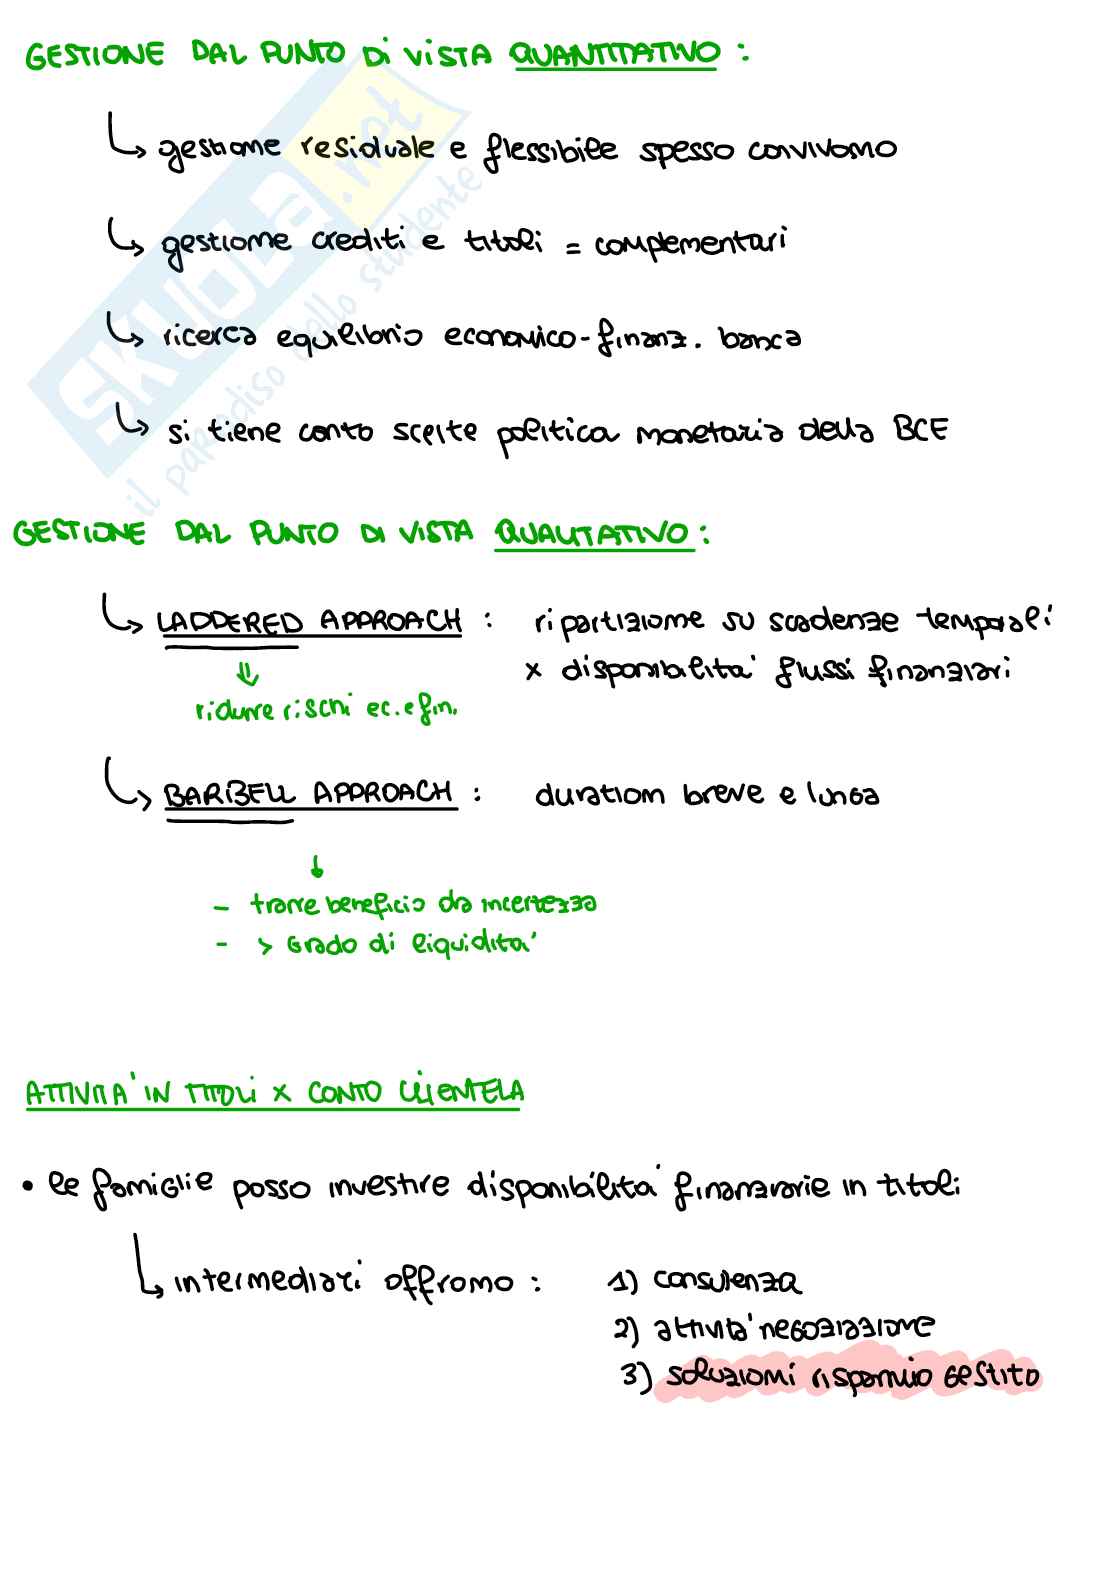 GESTIONE DAL PUNTO DI VISTA QUANTITATIVO :
gestione residuale e flessibile spesso convivono
gestione crediti e titoli = complementari
ricerca equilibrio economico-finanz. banca
si tiene conto scelte politica monetaria della BCE
SKUOLA.net
il paradiso dello studente
GESTIONE DAL PUNTO DI VISTA QUALITATIVO :
LADDERED APPROACH : ripartizione su scadenze temporali
x disponibilità flussi finanziari
ridurre rischi ec. e fin.
BARBELL APPROACH : duration breve e lunga
- trarre beneficio da incertezza
- > grado di liquidità
ATTIVITA' IN TITOLI x CONTO CLIENTELA
• le famiglie posso investire disponibilità finanziarie in titoli
intermediari offrono : 1) consulenza
2) attività negoziazione
3) soluzioni risparmio gestito